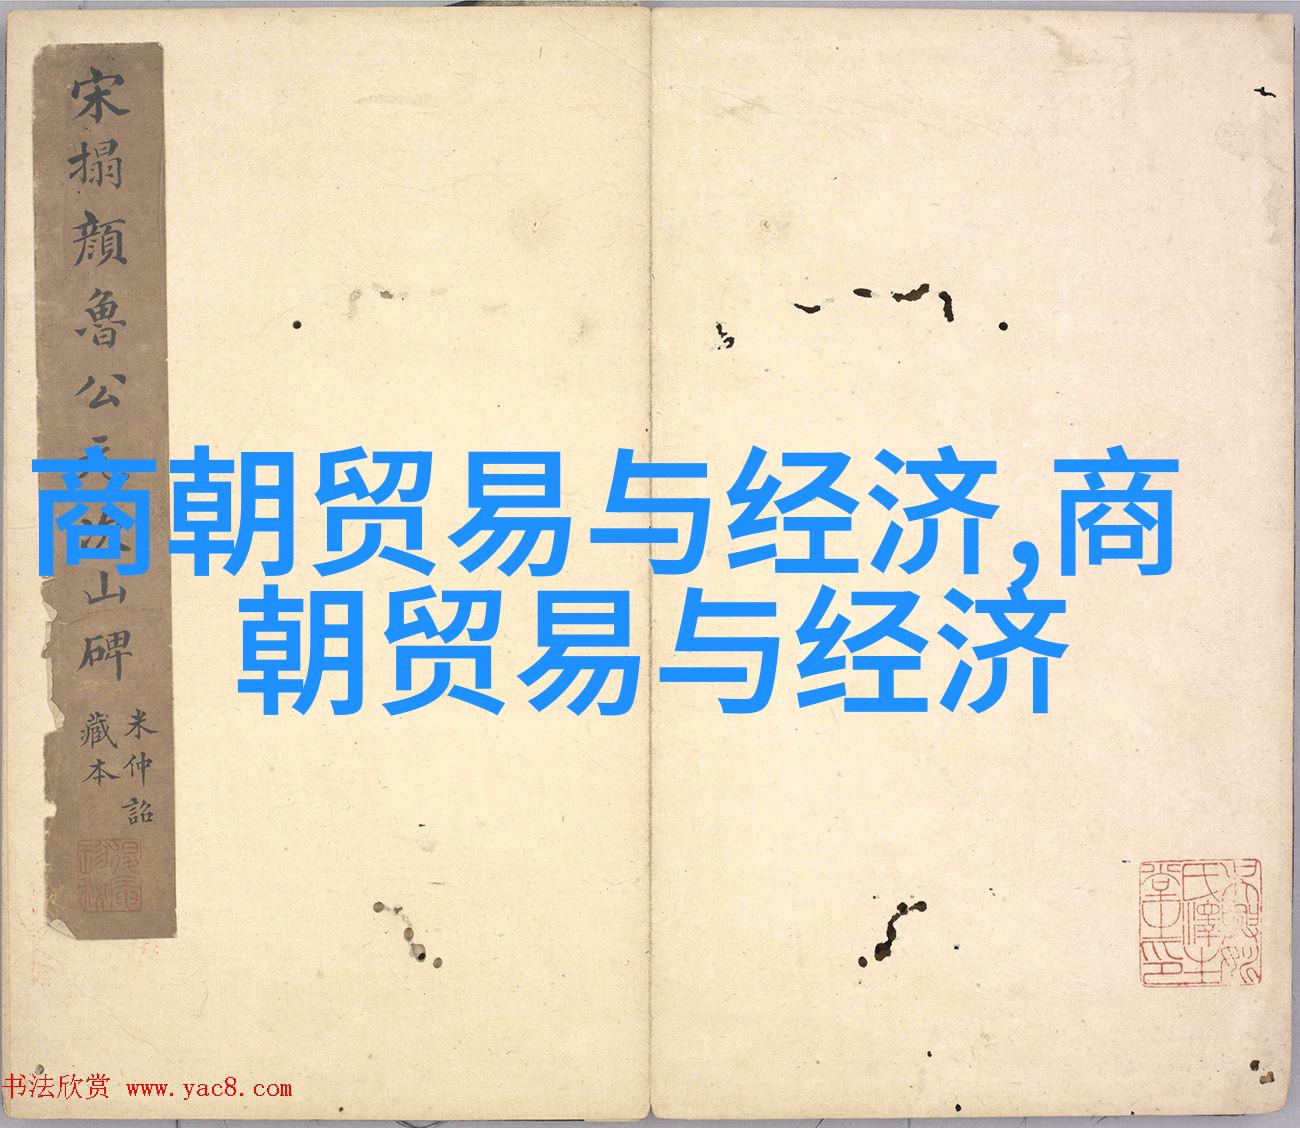 宋搨顏魯公元次山碑
米仲詔
藏本
商朝贸易与经济,商
朝贸易与经济
书法欣赏 www.yac8.com